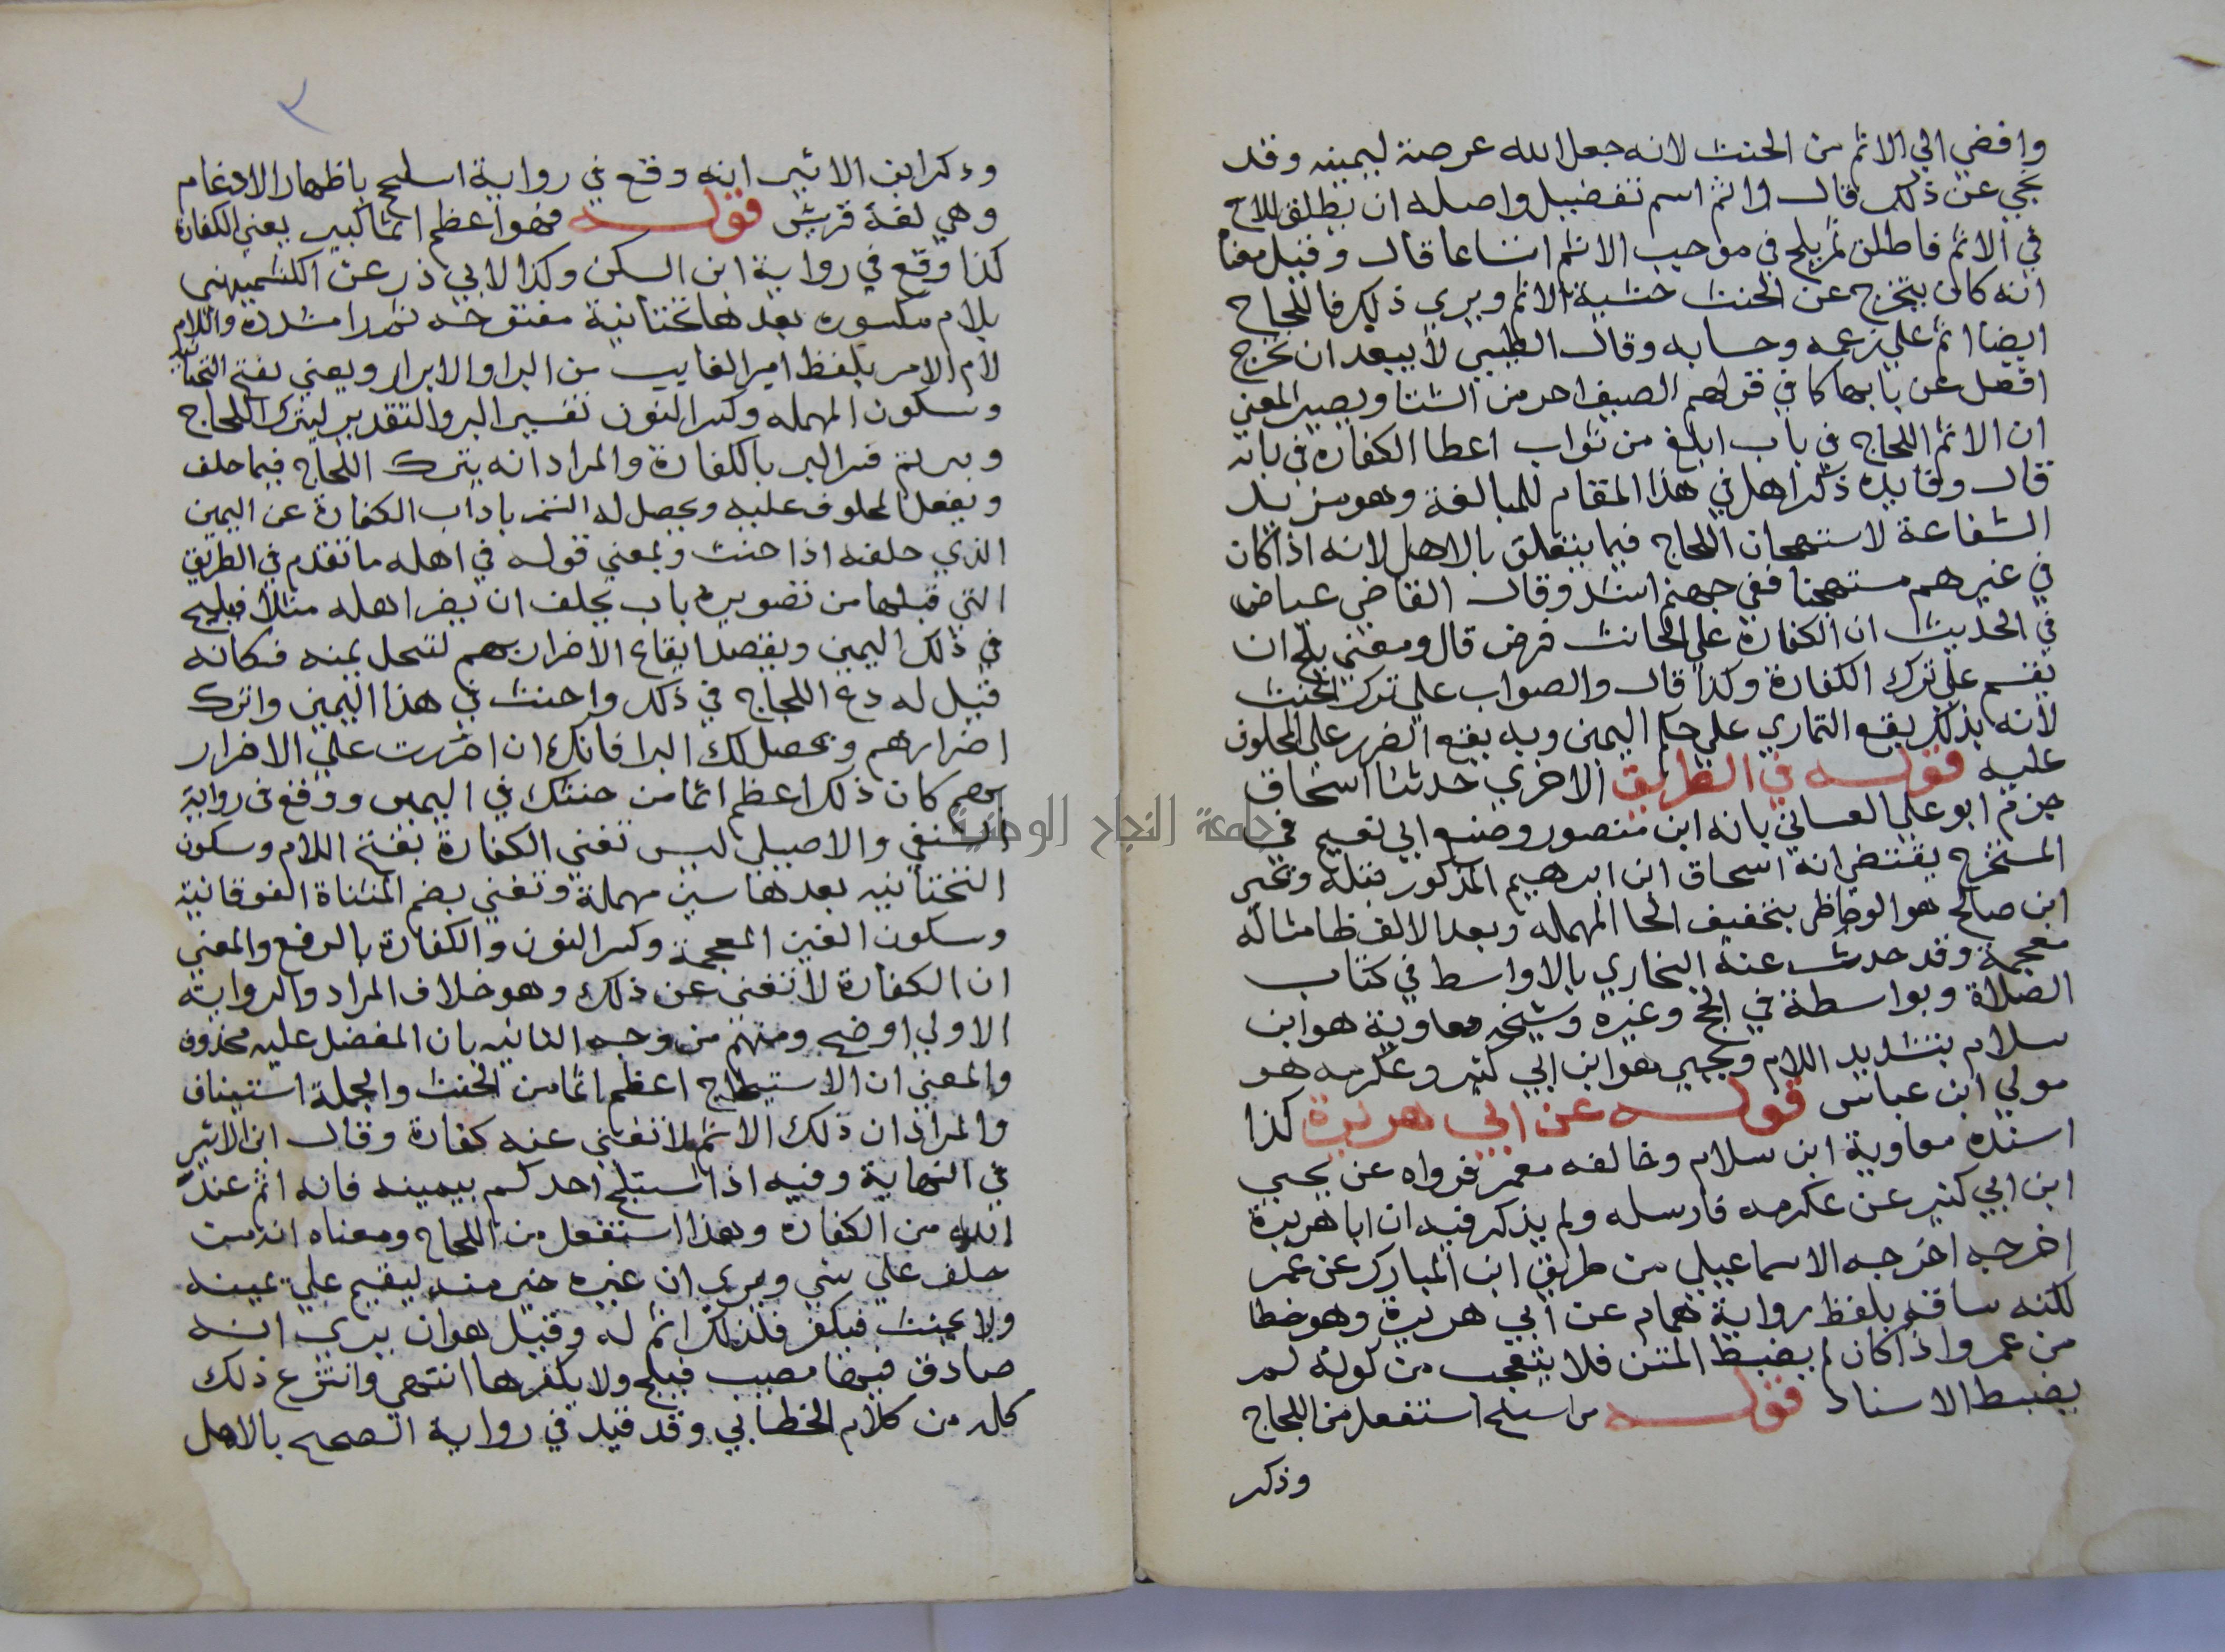 وافضي الي الاثم من الحنث لانه جعل الله عرضة ليمينه وقد
نهي عن ذلك قال واثم اسم تفضيل واصله ان يطلق اللاج
في الاثم فاطلق لمن يلج في موجب الاثم اتساعا قال وقيل معناه
انه كان يتحرج عن الحنث خشية الاثم ويري ذلك فاللجاج
ايضا اثم علي زعمه وحسابه وقال الطيبي لا يبعد ان تخرج
افعل عن بابها كما في قولهم الصيف احر من الشتا ويصير المعني
ان الاثم اللجاج في باب ابلغ من ثواب اعطا الكفارة في بابه
قال وفايدة ذكر اهل في هذا المقام للمبالغة وهو مزيد
الشفاعة لاستهجان اللجاج فيما يتعلق بالاهل لانه اذا كان
في غيرهم مستهجنا ففي جهتهم اشد وقال القاضي عياض
في الحديث ان الكفارة علي الحانث فرض قال ومعني يلج ان
يقسم علي ترك الكفارة وكذا قال والصواب علي ترك الحنث
لانه بذلك يقع التماري علي حكم اليمين وبه يقع الضرر علي المحلوف
عليه قوله في الطريق الاخري حدثنا اسحاق
جزم ابو علي الغساني بانه ابن منصور وصنيع ابي نعيم في
المستخرج يقتضي انه اسحاق ابن ابرهيم المذكور قبله ويحيي
ابن صالح هو الوحاظي بتخفيف الحا المهمله وبعد الالف ظا مشاله
معجمة وقد حدث عنه البخاري بالاواسط في كتاب
الصلاة وبواسطة في الحج وغيره وشيخه معاوية هو ابن
سلام بتشديد اللام ويحيي هو ابن ابي كثير وعكرمه هو
مولي ابن عباس قوله عن ابي هريرة كذا
اسنده معاوية ابن سلام وخالفه معمر فرواه عن يحيي
ابن ابي كثير عن عكرمه فارسله ولم يذكر فيه ان ابا هريرة
اخرجه اخرجه الاسماعيلي من طريق ابن المبارك عن عمر
لكنه ساقه بلفظ رواية همام عن ابي هريرة وهو خطا
من عمر واذا كان لم يضبط المتن فلا يتعجب من كونه لم
يضبط الاسناد قوله من استلج استفعل من اللجاج
وذكر
٢
وذكر ابن الاثير انه وقع في رواية استلجج باظهار الادغام
وهي لغة قريش قوله فهو اعظم اثما كبير يعني الكفارة
كذا وقع في رواية ابن السكن وكذا لابي ذر عن الكشميهني
بلام مكسورة بعدها تحتانية مفتوحه ثم را مشددة واللام
لام الامر بلفظ امر الغايب من البر او الابرار ويعني بفتح التحتانية
وسكون المهمله وكسر النون تفسير البر والتقدير ليترك اللجاج
ويبر ثم فسر البر بالكفارة والمراد انه يترك اللجاج فيما حلف
ويفعل المحلوف عليه ويحصل له البر باداب الكفارة عن اليمين
الذي حلفه اذا حنث وبمعني قوله في اهله ما تقدم في الطريق
التي قبلها من تصويره باب يحلف ان يضر اهله مثلا فيلج
في ذلك اليمين ويقصد ايقاع الاضرار بهم لتنحل يمينه فكانه
قيل له دع اللجاج في ذلك واحنث في هذا اليمين واترك
اضرارهم ويحصل لك البر فانك ان اضررت علي الاضرار
بهم كان ذلك اعظم اثما من حنثك في اليمين ووقع في رواية
النسفي والاصيلي ليس تغني الكفارة بفتح اللام وسكون
التحتانيه بعدها سين مهملة وتغني بضم المثناة الفوقانية
وسكون الغين المعجمة وكسر النون والكفارة بالرفع والمعني
ان الكفارة لا تغني عن ذلك وهو خلاف المراد والرواية
الاولي اوضح ومنهم من وجه الثانيه بان المفضل عليه محذوف
والمعني ان الاستيلجاج اعظم اثما من الحنث والجملة استيناف
والمراد ان ذلك الاثم لا تغني عنه كفارة وقال ابن الاثير
في النهاية وفيه اذا استلج احدكم بيمينه فانه اثم عند
الله من الكفارة وهذا استفعل من اللجاج ومعناه ان من
حلف علي شي ويري ان غيره خير منه ليقيم علي يمينه
ولا يحنث فيكفر فلذلك اثم له وقيل هو ان يري انه
صادق فيها مصيب فيلج ولا يكفرها انتهي وانتزع ذلك
كله من كلام الخطابي وقد قيد في رواية الصحيح بالاهل
جامعة النجاح الوطنية